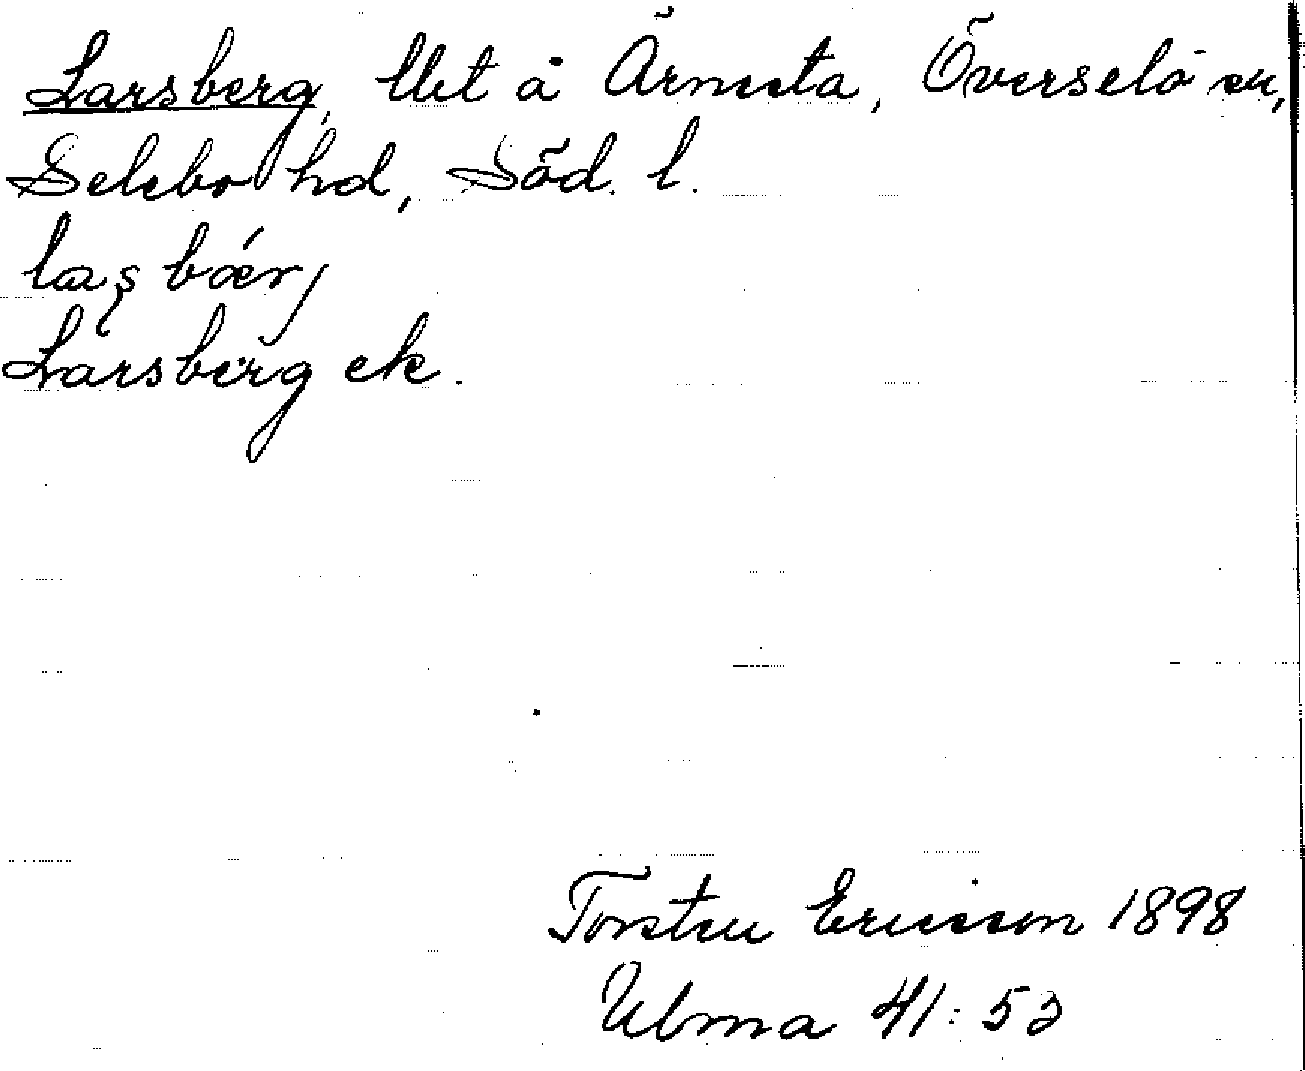 Larsberg, Utt å Ärnesta, Överselö sn,
Selebo hd, Söd. l.
laʂbǽrj
Larsberg ek.
Torsten Ericsson 1898
Ulma 41:53